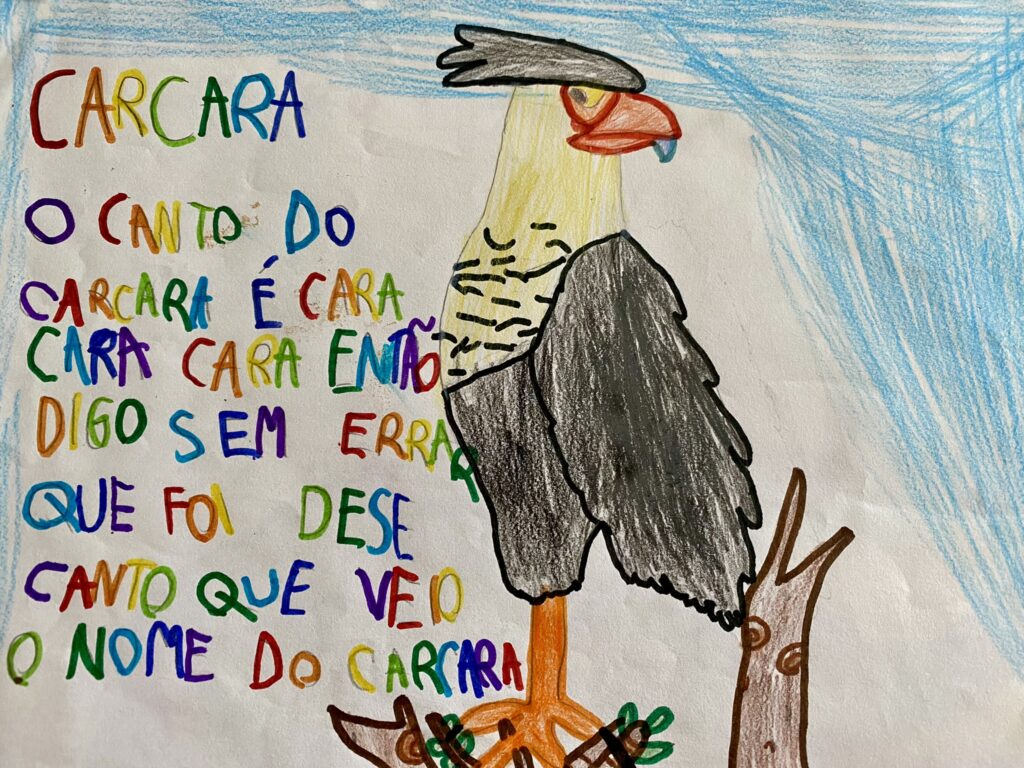 CARCARA
O CANTO DO
CARCARA É CARA
CARA CARA ENTÃO
DIGO SEM ERRAR
QUE FOI DESE
CANTO QUE VEIO
O NOME DO CARCARA